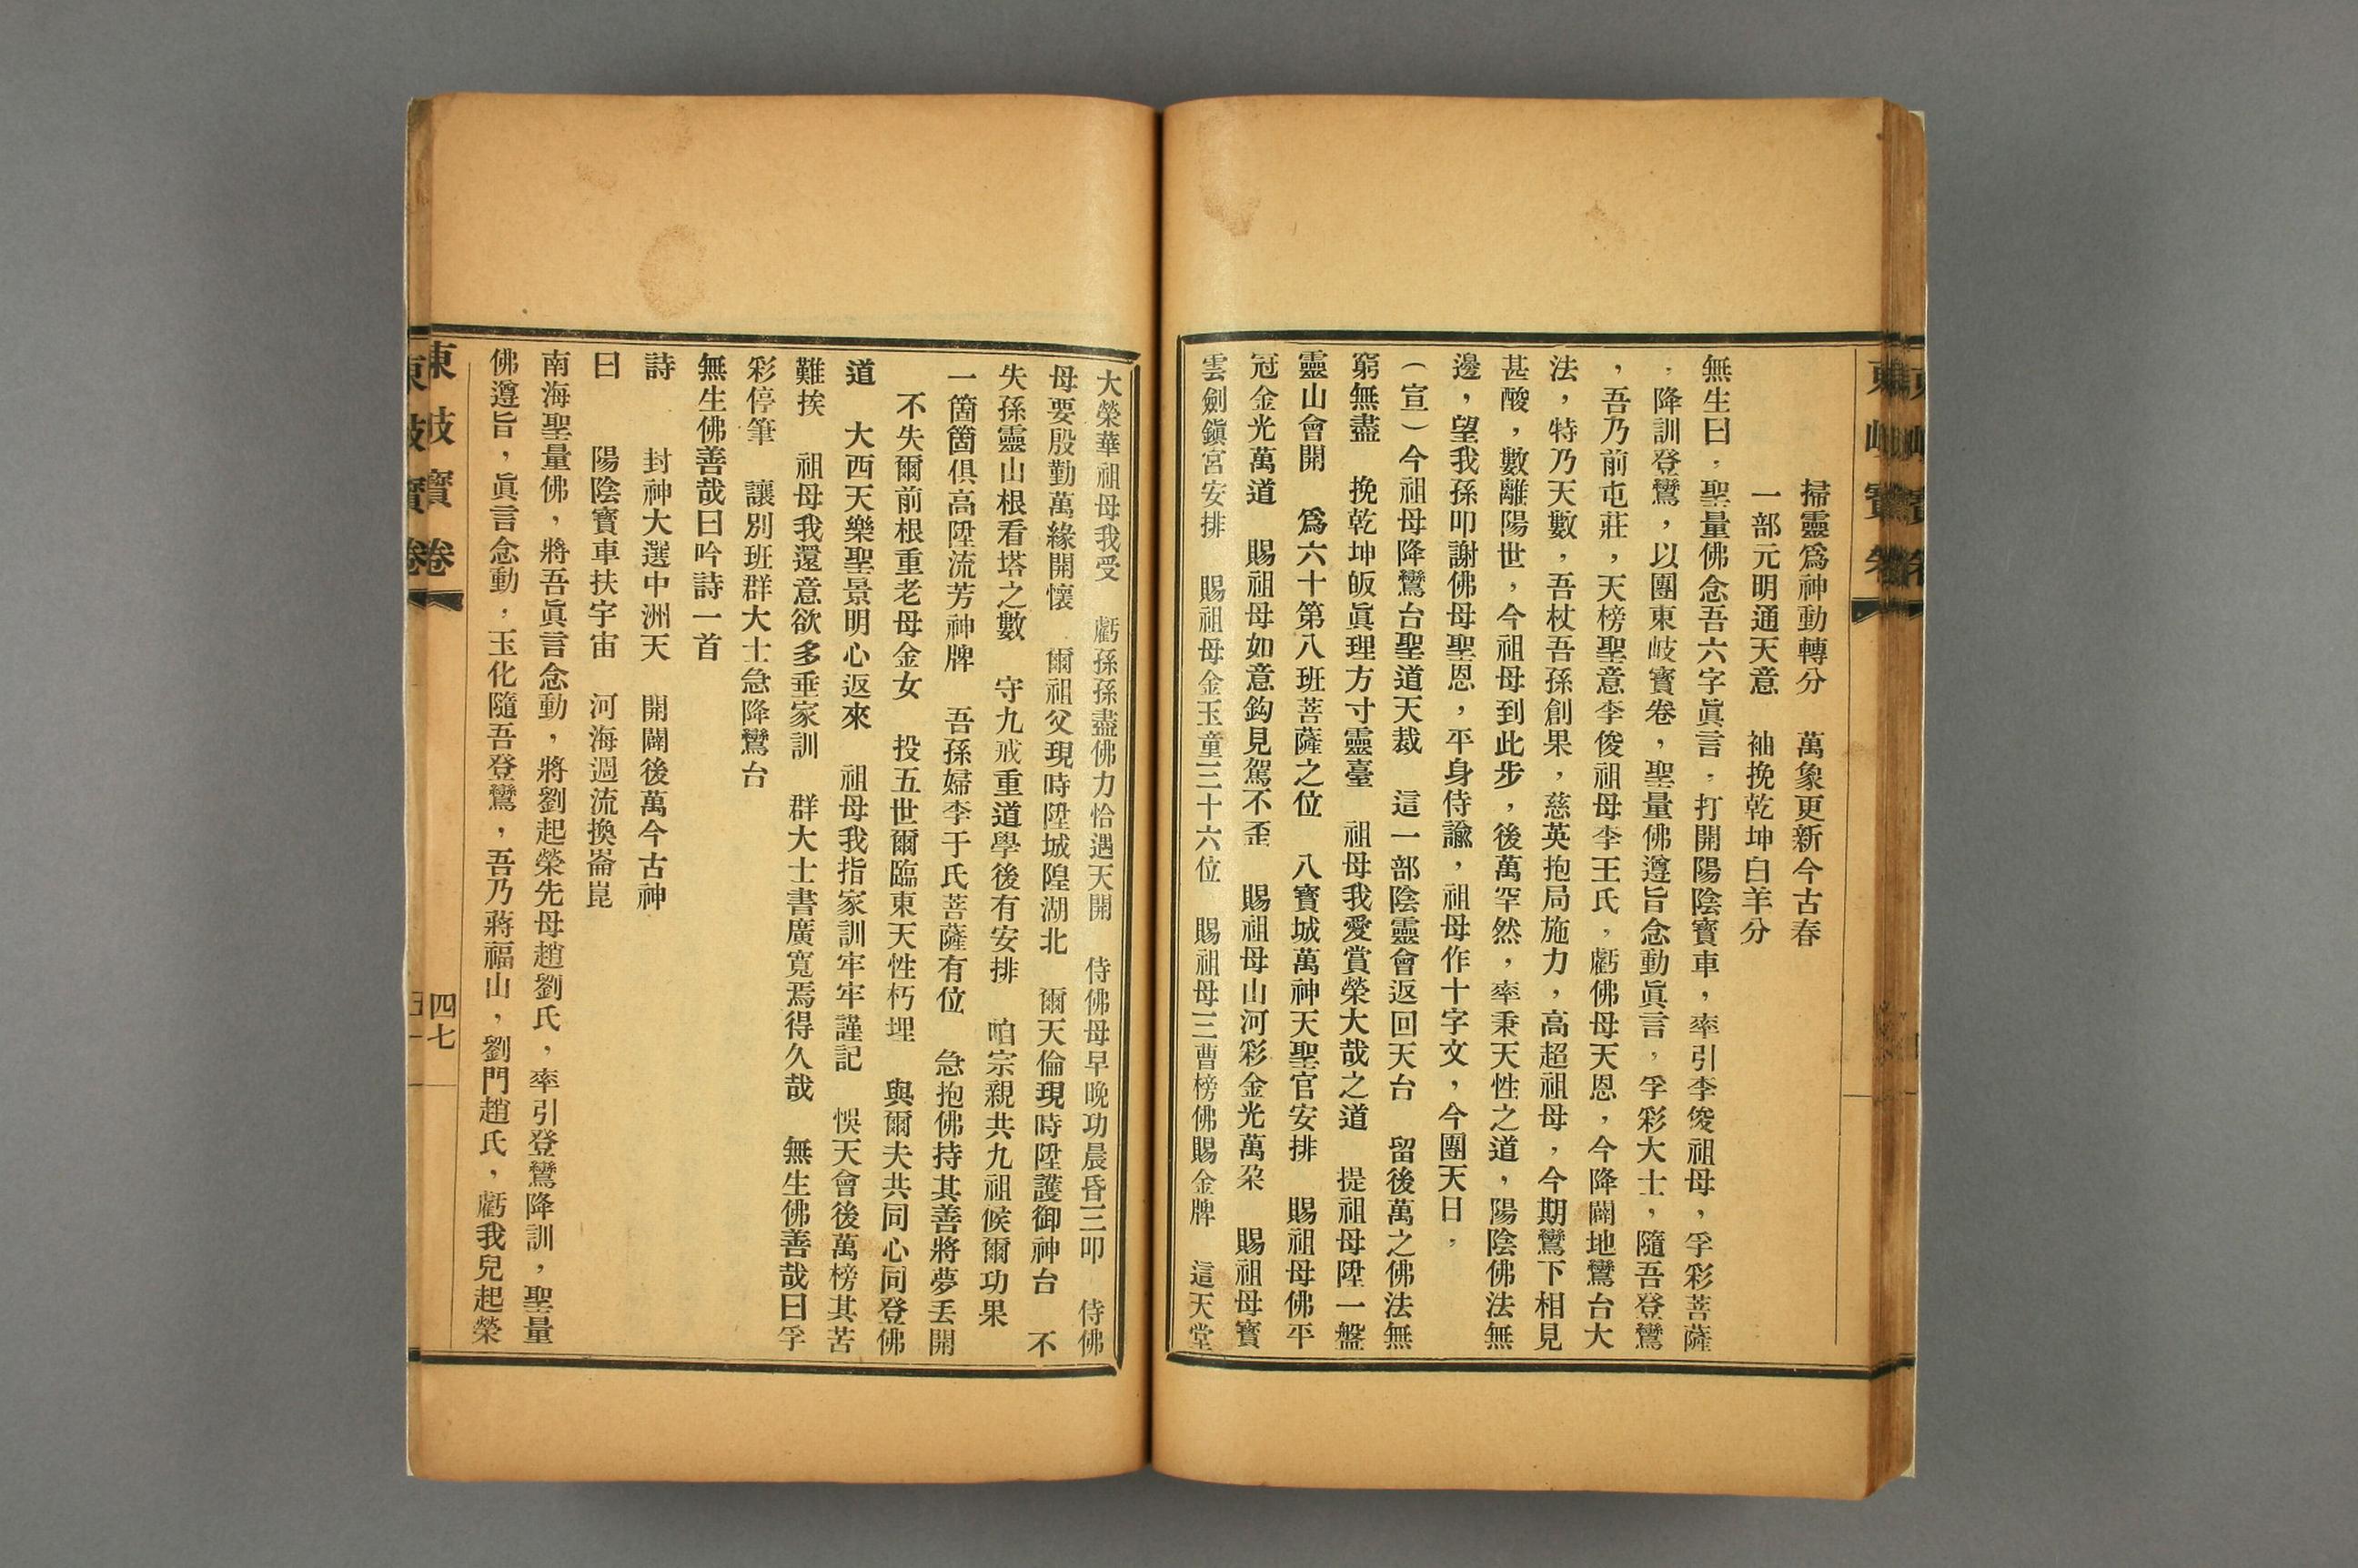 東岐寶卷
掃靈爲神動轉分　萬象更新今古春
一部元明通天意　袖挽乾坤白羊分
無生曰，聖量佛念吾六字眞言，打開陽陰寶車，率引李俊祖母，孚彩菩薩
，降訓登鸞，以團東岐寶卷，聖量佛遵旨念動眞言，孚彩大士，隨吾登鸞
，吾乃前屯莊，天榜聖意李俊祖母李王氏，虧佛母天恩，今降闢地鸞台大
法，特乃天數，吾杖吾孫創果，慈英抱局施力，高超祖母，今期鸞下相見
甚酸，數離陽世，今祖母到此步，後萬罕然，率秉天性之道，陽陰佛法無
邊，望我孫叩謝佛母聖恩，平身侍諭，祖母作十字文，今團天日，
（宣）今祖母降鸞台聖道天裁　這一部陰靈會返回天台　留後萬之佛法無
窮無盡　挽乾坤皈眞理方寸靈臺　祖母我愛賞榮大哉之道　提祖母陞一盤
靈山會開　爲六十第八班菩薩之位　八寶城萬神天聖官安排　賜祖母佛平
冠金光萬道　賜祖母如意鈎見駕不歪　賜祖母山河彩金光萬朶　賜祖母寶
雲劍鎭宮安排　賜祖母金玉童三十六位　賜祖母三曹榜佛賜金牌　這天堂
大榮華祖母我受　虧孫孫盡佛力恰遇天開　侍佛母早晚功晨昏三叩　侍佛
母要殷勤萬緣開懷　爾祖父現時陞城隍湖北　爾天倫現時陞護御神台　不
失孫靈山根看塔之數　守九戒重道學後有安排　咱宗親共九祖候爾功果
一箇箇俱高陞流芳神牌　吾孫婦李于氏菩薩有位　急抱佛持其善將夢丟開
不失爾前根重老母金女　投五世爾臨東天性朽埋　與爾夫共同心同登佛
道　大西天樂聖景明心返來　祖母我指家訓牢牢謹記　悞天會後萬榜其苦
難挨　祖母我還意欲多垂家訓　群大士書廣寬焉得久哉　無生佛善哉曰孚
彩停筆　讓別班群大士急降鸞台
無生佛善哉曰吟詩一首
詩　封神大選中洲天　開闢後萬今古神
曰　陽陰寶車扶宇宙　河海週流換崙崑
南海聖量佛，將吾眞言念動，將劉起榮先母趙劉氏，率引登鸞降訓，聖量
佛遵旨，眞言念動，玉化隨吾登鸞，吾乃蔣福山，劉門趙氏，虧我兒起榮
東岐寶卷
四七